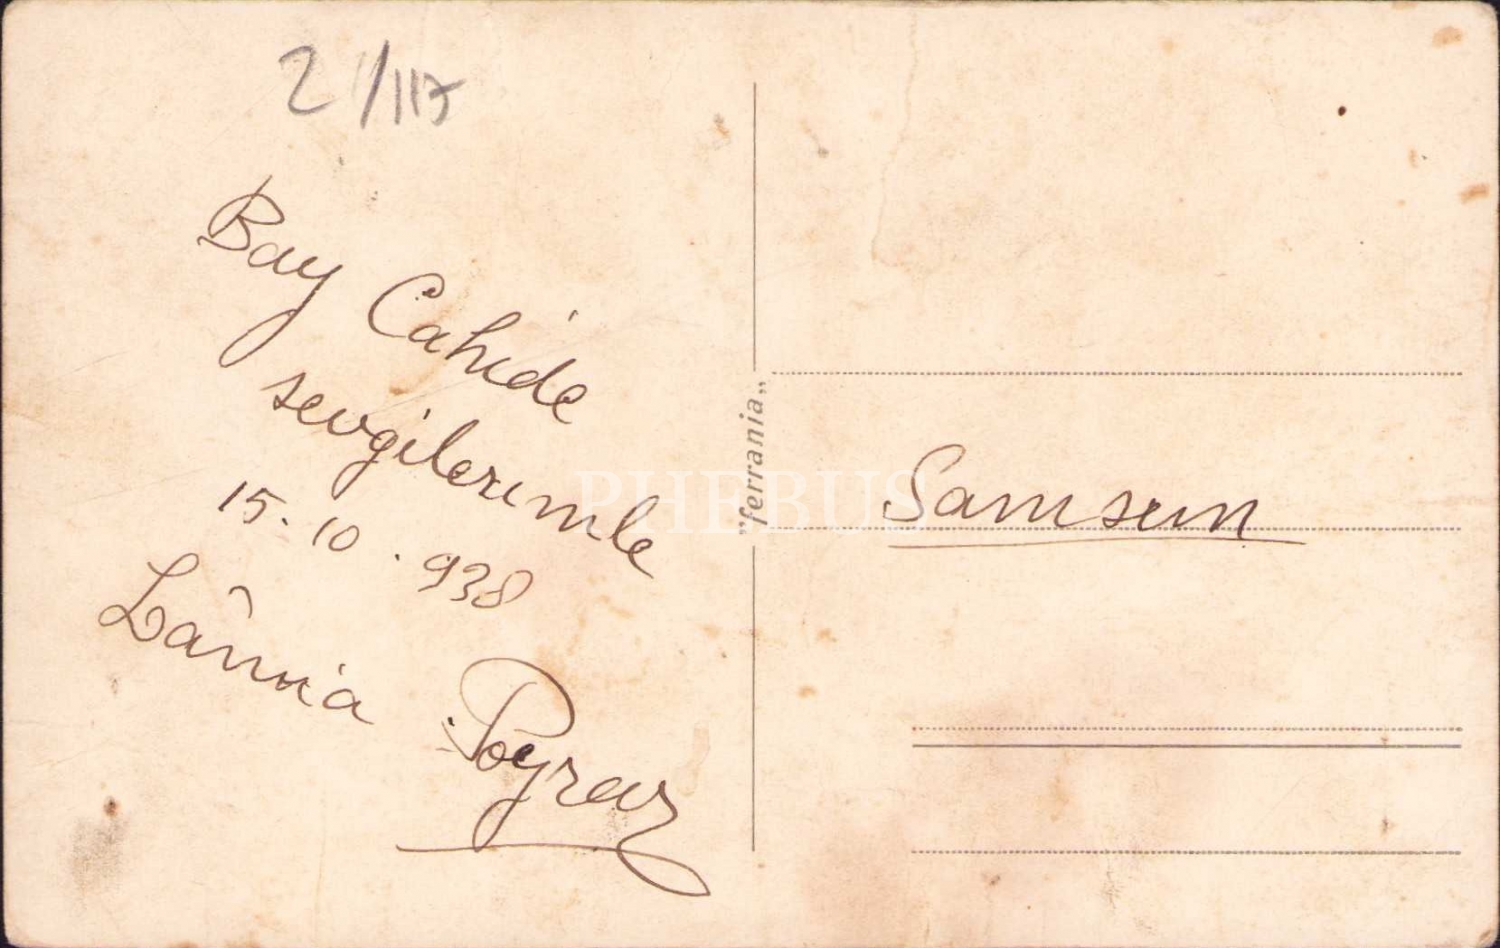 21/117
Bay Cahide
sevgilerimle
15.10.938
Lâmia Poyraz
"ferrania"
Samsun
PHEBUS